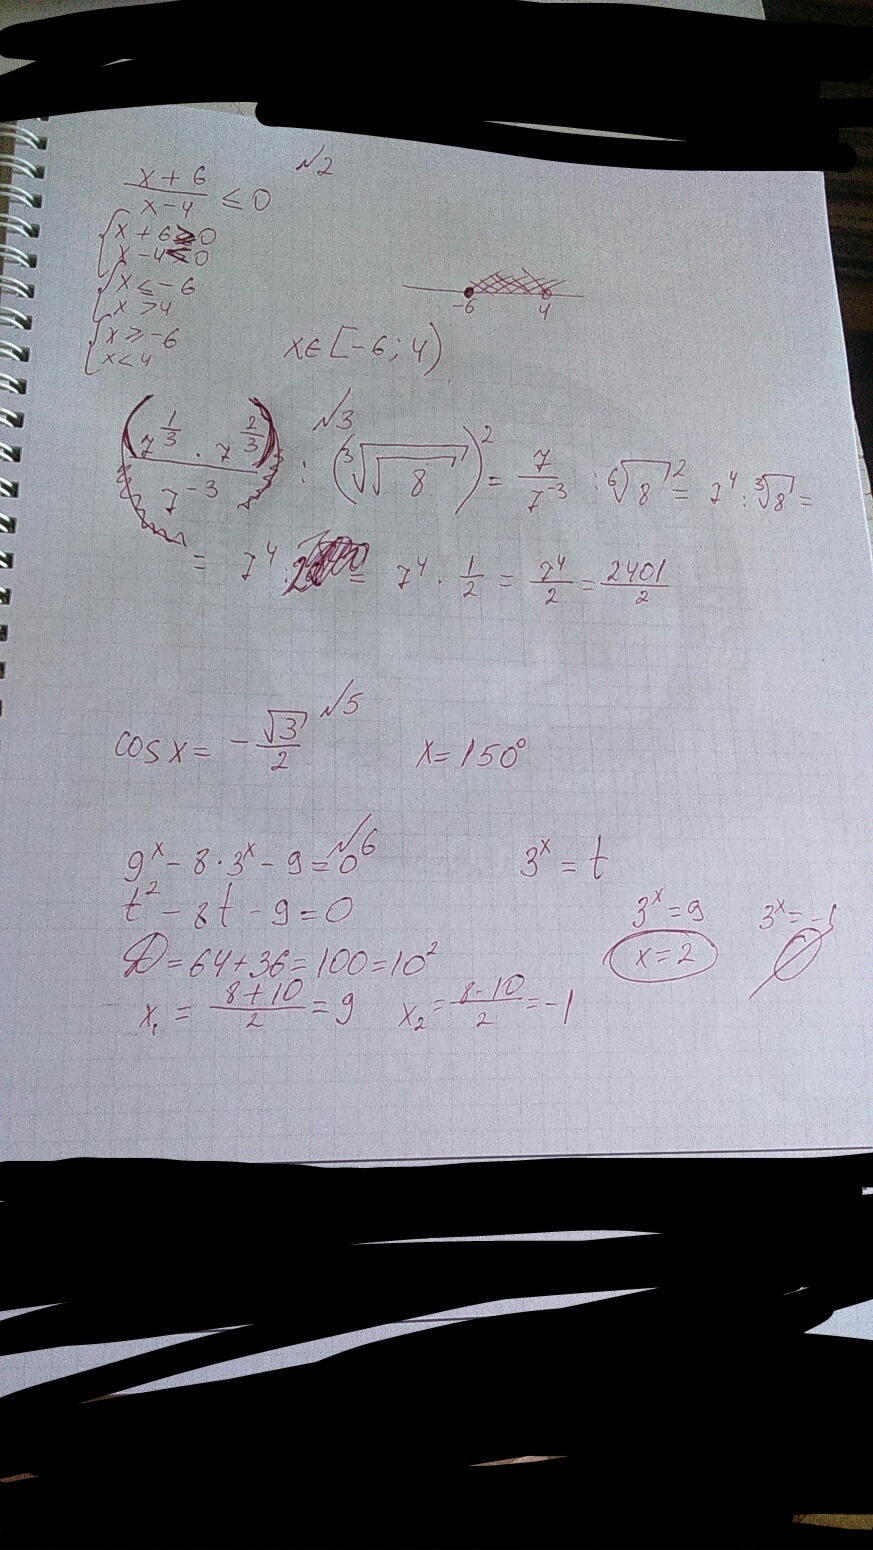 №2
x+6/x-4 ≤ 0
{x+6≥0
x-4≤0
{x≤-6
x>4
{x≥-6
x<4
-6 4
x∈[-6; 4)
№3
(7^(1/3) · 7^(2/3))/7^(-3) : (∛√8)^2 = 7/7^(-3) : ⁶√8^2 = 7^4 : ∛8 =
= 7^4 : 2 = 7^4 · 1/2 = 7^4/2 = 2401/2
№5
cos x = -√3/2 x=150°
№6
9^x - 8·3^x - 9 = 0 3^x = t
t^2 - 8t - 9 = 0 3^x = 9 3^x = -1
D = 64+36 = 100 = 10^2 x=2 ∅
x₁ = (8+10)/2 = 9 x₂ = (8-10)/2 = -1